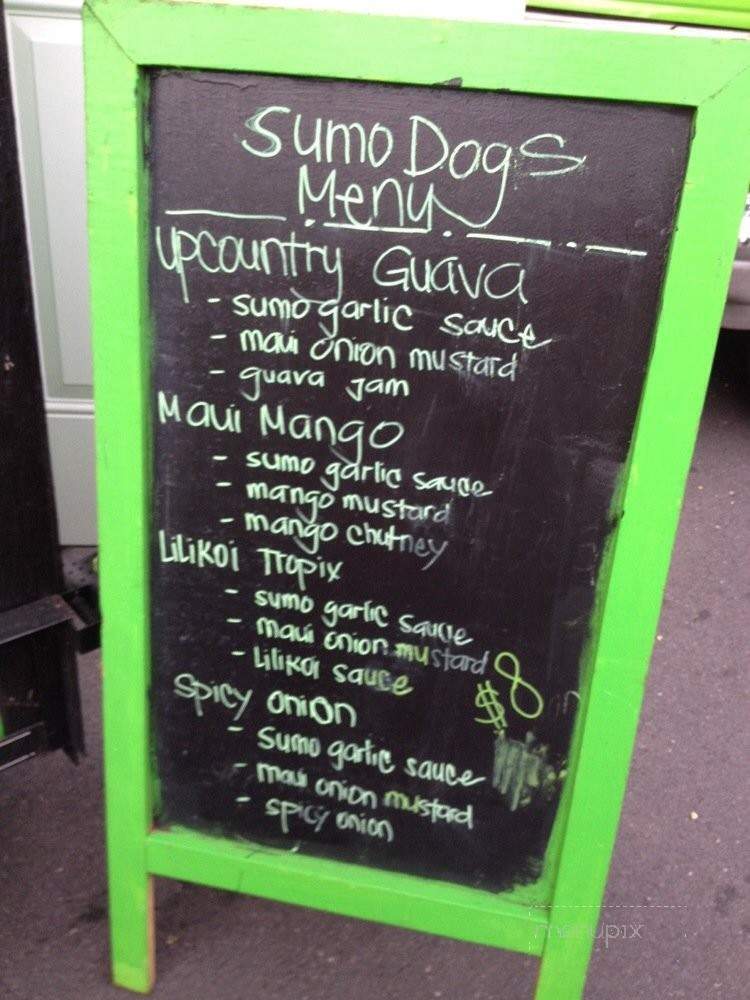 Sumo Dogs
Menu
Upcountry Guava
- sumo garlic sauce
- maui onion mustard
- guava jam
Maui Mango
- sumo garlic sauce
- mango mustard
- mango chutney
Lilikoi Tropix
- sumo garlic sauce
- maui onion mustard
- Lilikoi sauce
$8
Spicy onion
- Sumo garlic sauce
- maui onion mustard
- spicy onion
menupix